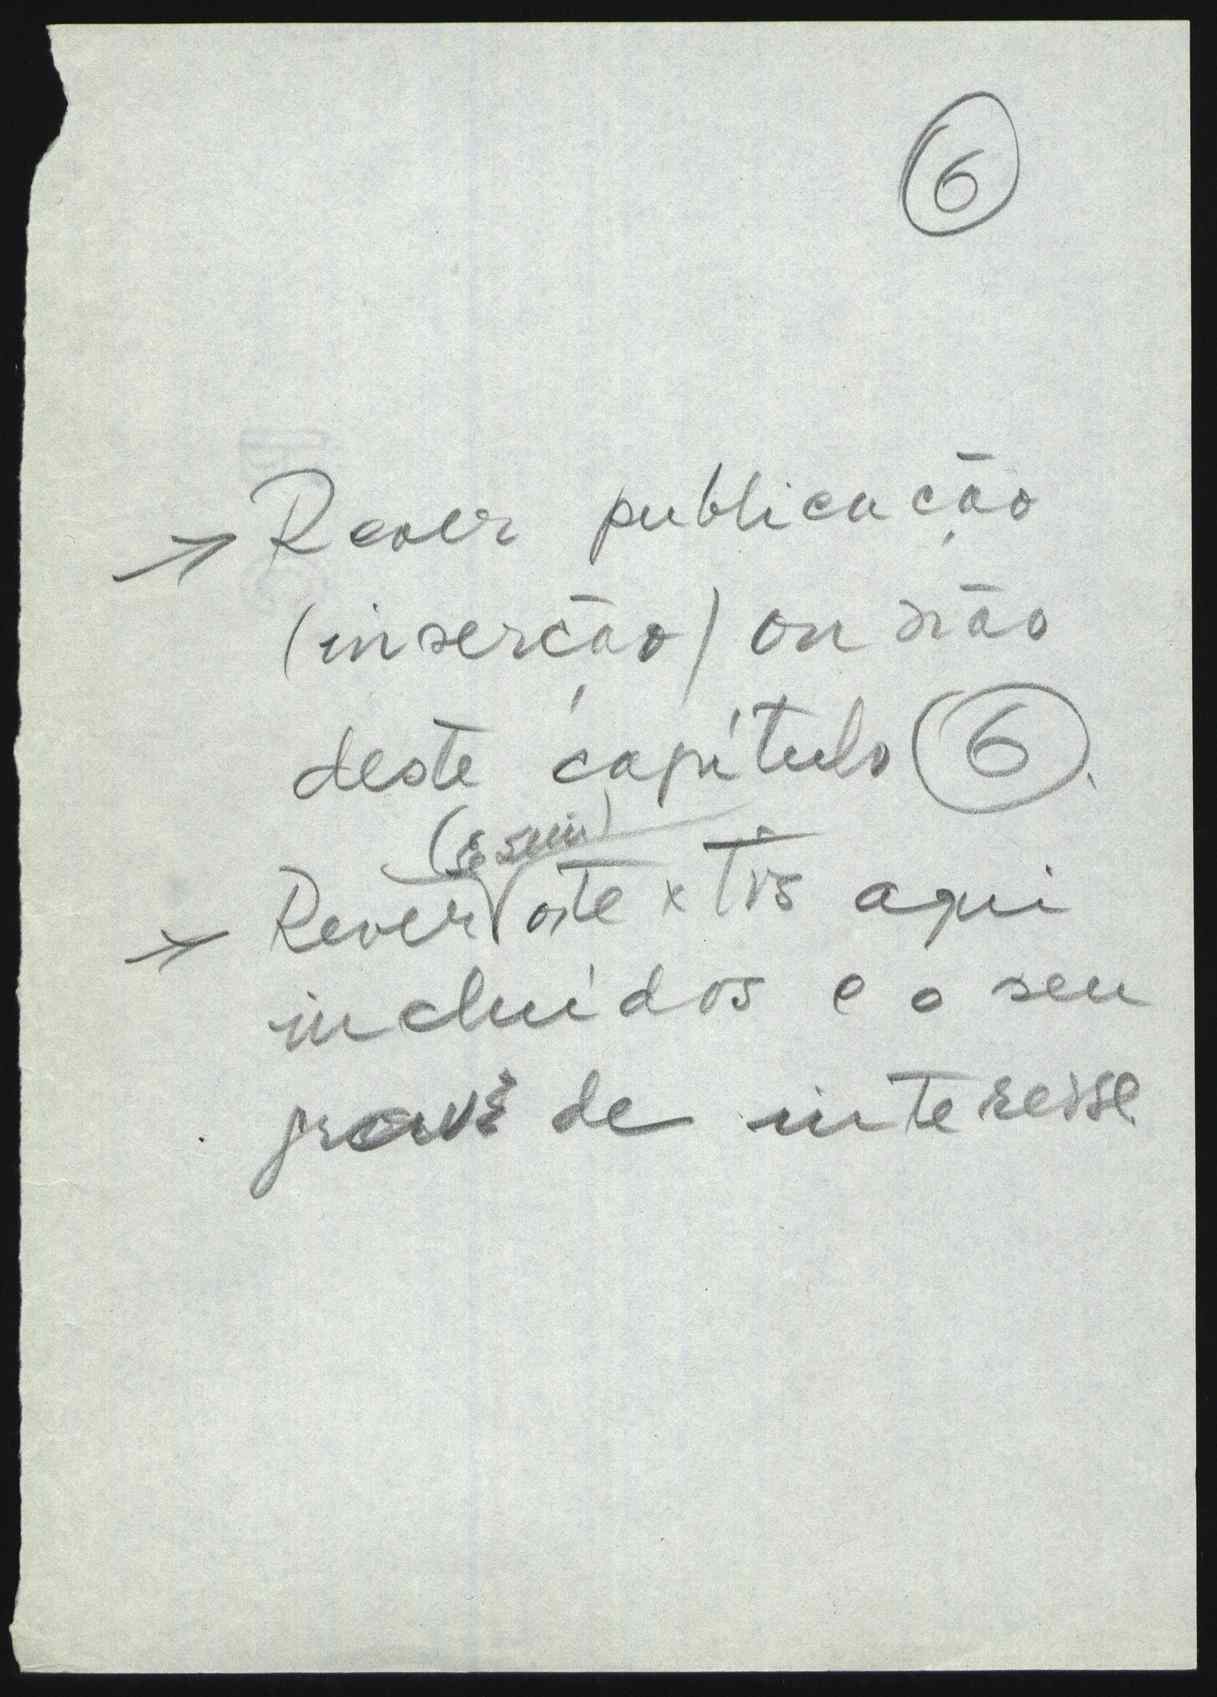 6
→ Rever publicação
(inserção) ou não
deste capítulo 6.
(se sim)
→ Rever os textos aqui
incluídos e o seu
grau de interesse